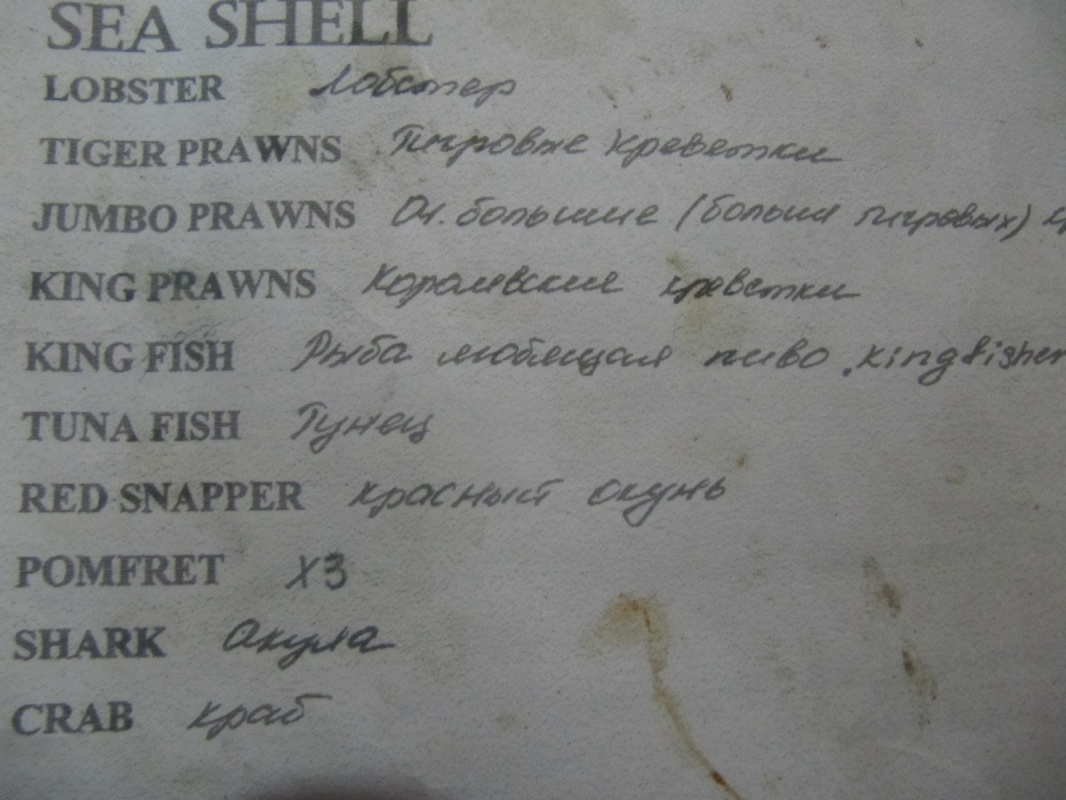 SEA SHELL
LOBSTER Лобстер
TIGER PRAWNS Тигровые креветки
JUMBO PRAWNS Оч. большие (больше тигровых)
KING PRAWNS Королевские креветки
KING FISH Рыба любящая пиво "kingfisher
TUNA FISH Тунец
RED SNAPPER красный окунь
POMFRET ХЗ
SHARK Акула
CRAB краб